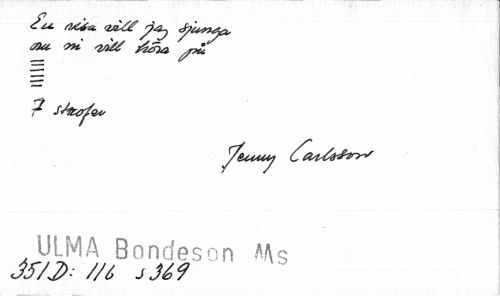 En visa vill jag sjunga
om ni vill höra på
7 strofer
Jenny Carlsson
ULMA Bondeson Ms
351D: 116 s 369